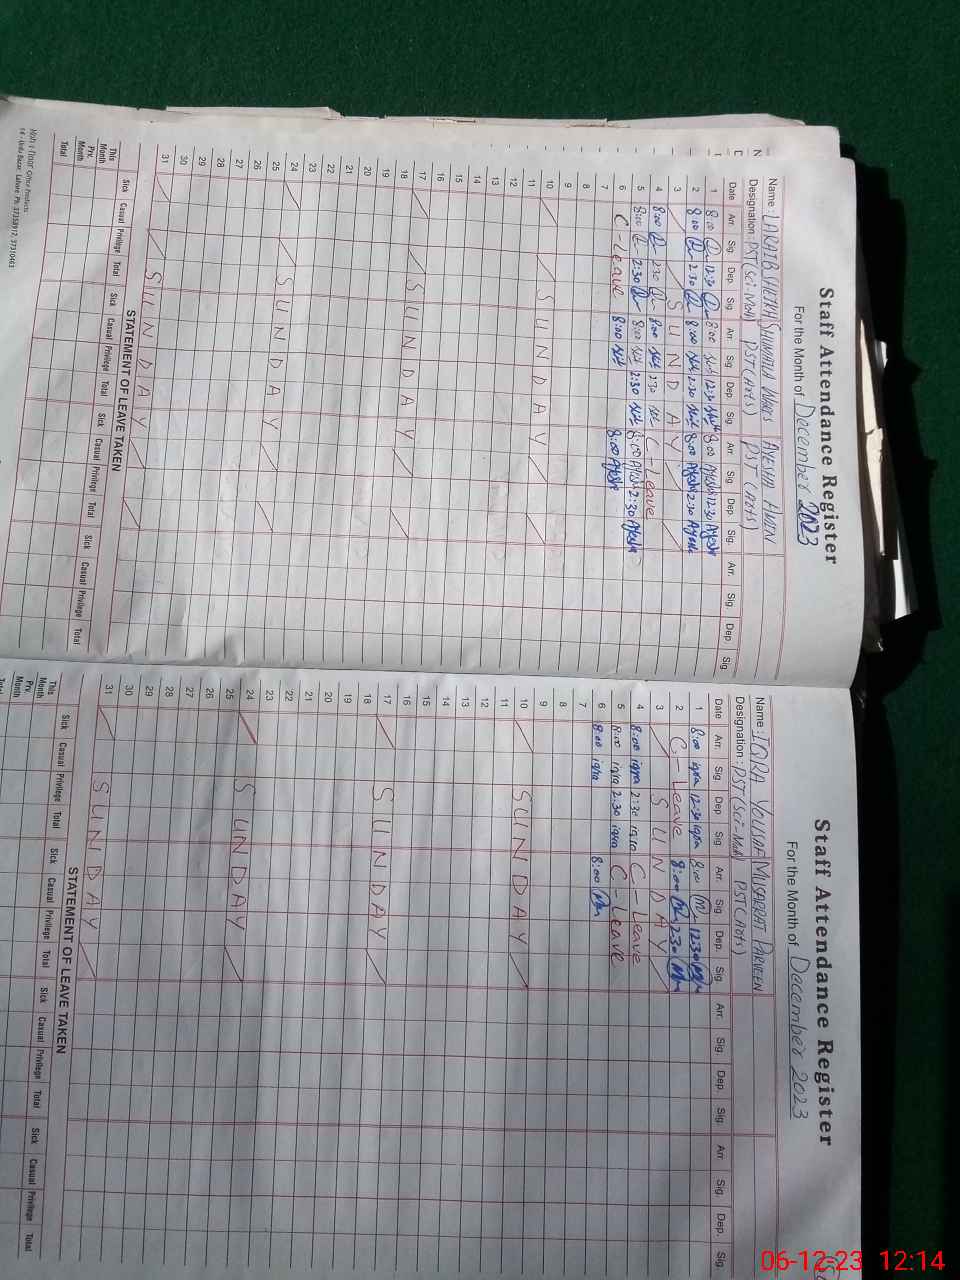 Staff Attendance Register
For the Month of December 2023
Name : LARAIB SHEIKH SHUMAILA WARIS AYESHA AMIN
Designation : PST (Sci-Math) PST (Arts) PST (Arts)
Date Arr. Sig. Dep. Sig. Arr. Sig. Dep. Sig. Arr. Sig. Dep. Sig. Arr. Sig. Dep. Sig.
1 8:00 12:30 8:00 12:30 8:00 Ayesha 12:30 Ayesha
2 8:00 2:30 8:00 2:30 8:00 Ayesha 2:30 Ayesha
3 SUNDAY
4 8:00 2:30 8:00 2:30 C-Leave
5 8:00 2:30 8:00 2:30 8:00 Ayesha 2:30 Ayesha
6 C-Leave 8:00 8:00 Ayesha
7
8
9
10 SUNDAY
11
12
13
14
15
16
17 SUNDAY
18
19
20
21
22
23
24 SUNDAY
25
26
27
28
29
30
31 SUNDAY
STATEMENT OF LEAVE TAKEN
Sick Casual Privilege Total Sick Casual Privilege Total Sick Casual Privilege Total Sick Casual Privilege Total
This Month
Prv. Month
Total
Office Products
14 - Urdu Bazar, Lahore Ph:
Staff Attendance Register
For the Month of December 2023
Name : IQRA YOUSAF MUSARRAT PARVEEN
Designation : PST (Sci-Math) PST (Arts)
Date Arr. Sig. Dep. Sig. Arr. Sig. Dep. Sig. Arr. Sig. Dep. Sig. Arr. Sig. Dep. Sig.
1 8:00 iqra 12:30 iqra 8:00 12:30
2 C-Leave 8:00 2:30
3 SUNDAY
4 8:00 iqra 2:30 iqra C-Leave
5 8:00 iqra 2:30 iqra C-Leave
6 8:00 iqra 8:00
7
8
9
10 SUNDAY
11
12
13
14
15
16
17 SUNDAY
18
19
20
21
22
23
24 SUNDAY
25
26
27
28
29
30
31 SUNDAY
STATEMENT OF LEAVE TAKEN
Sick Casual Privilege Total Sick Casual Privilege Total Sick Casual Privilege Total Sick Casual Privilege Total
This Month
Prv. Month
Total
06-12-23 12:14